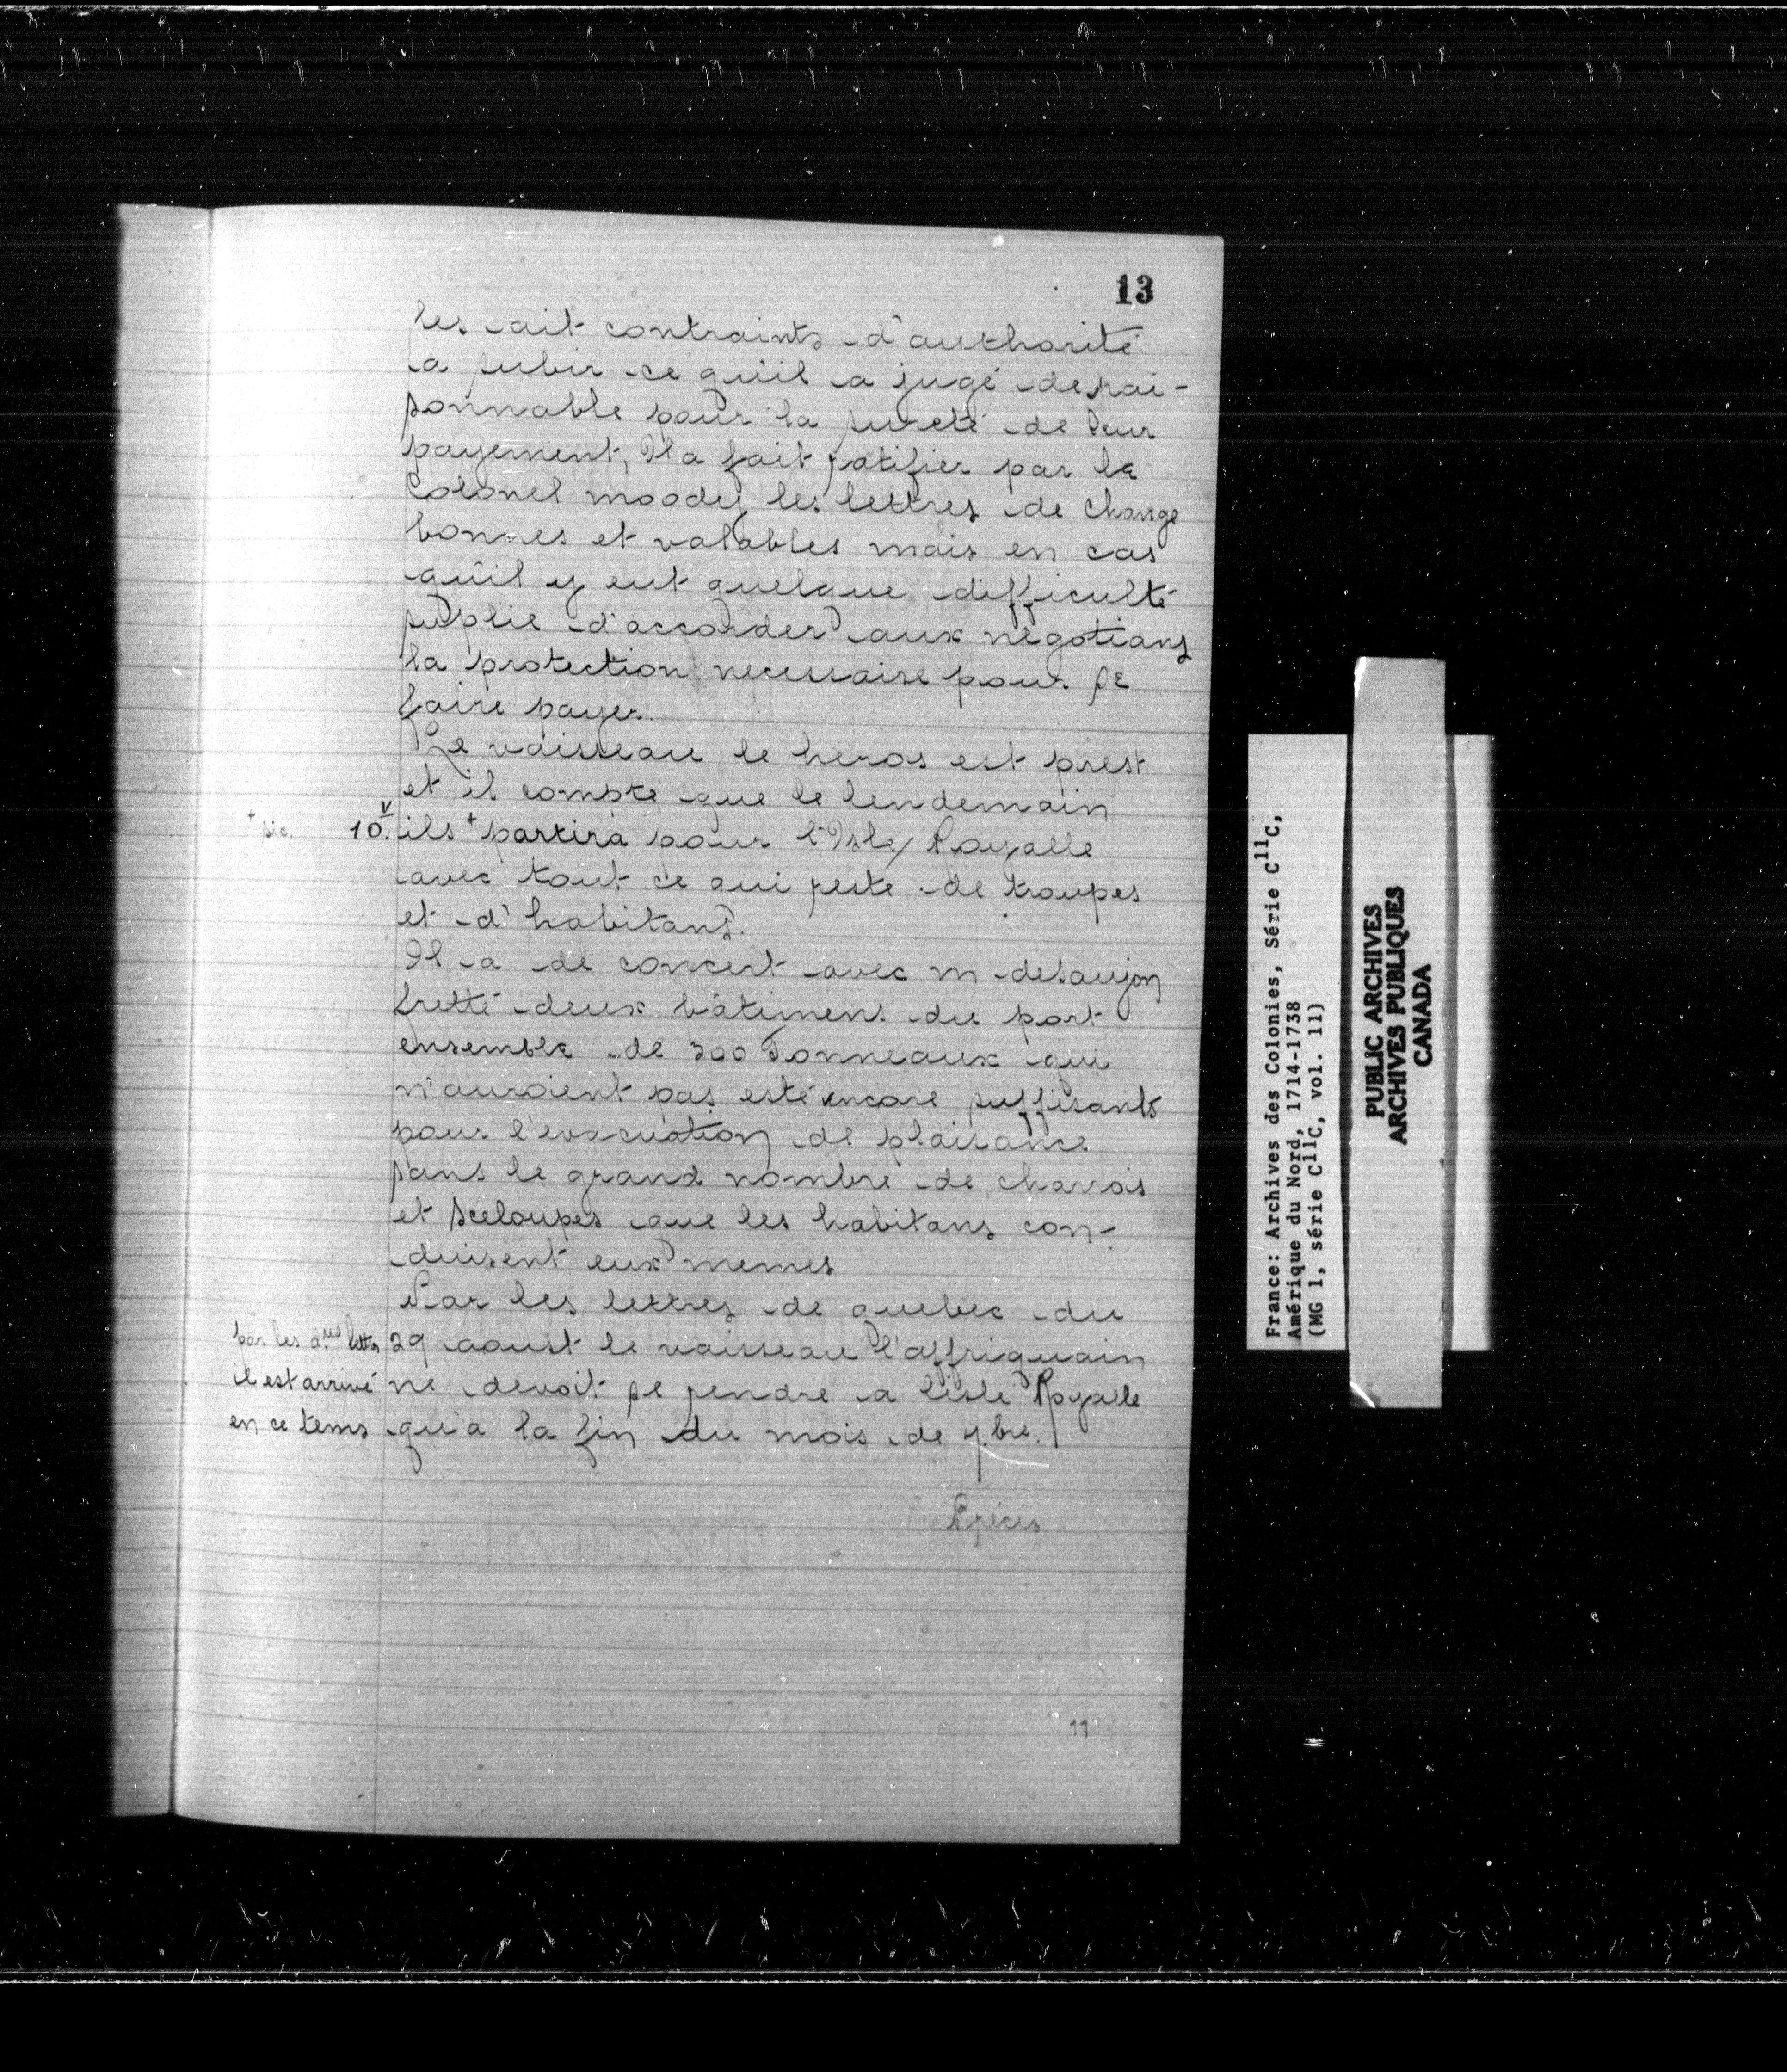 13
les ait contraints d'authorité
a subir ce qu'il a jugé de rai-
sonnable pour la sureté de leur
payement, Il a fait ratifier par le
Colonel moody les lettres de change
bonnes et valables mais en cas
qu'il y eut quelque difficulté
suplie d'accorder aux négotians
la protection necessaire pour se
faire payer.
Le vaisseau le heros est prest
et il compte que le lendemain
+ sic. 10.v ils + partira pour l'Isle Royalle
avec tout ce qui reste de troupes
et d'habitans.
Il a de concert avec m desaujon
fretté deux bâtimens du port
ensemble de 300 Tonneaux qui
n'auroient pas esté encore suffisants
pour l'evacuation de plaisance
sans le grand nombre de charois
et sceloupes que les habitans con-
duisent eux memes
Par les lettres de quebec du
par les d.res lettres 29 aoust le vaisseau l'affriquain
il est arrivé ne devoit se rendre a lisle Royalle
en ce tems qu'a la fin du mois de 7bre.
11
France: Archives des Colonies, Série C11C,
Amérique du Nord, 1714-1738
(MG 1, série C11C, vol. 11)
PUBLIC ARCHIVES
ARCHIVES PUBLIQUES
CANADA